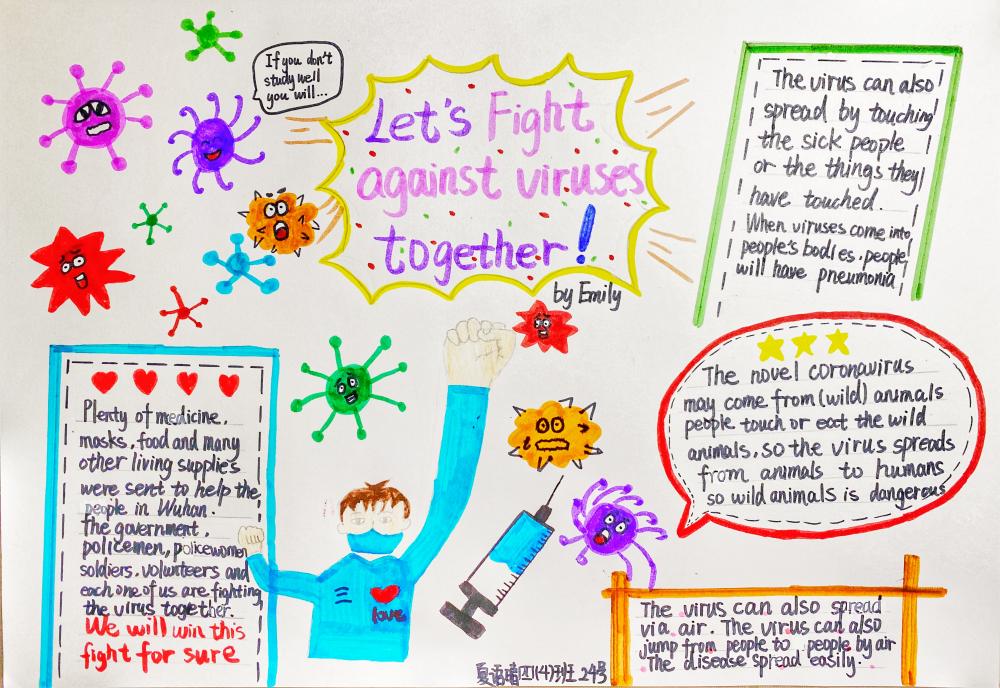 If you don't
study well
you will...
Let's Fight
against viruses
together!
by Emily
The virus can also
spread by touching
the sick people
or the things they
have touched.
When viruses come into
people's bodies, people
will have pneumonia
The novel coronavirus
may come from (wild) animals
people touch or eat the wild
animals, so the virus spreads
from animals to humans
so wild animals is dangerous
Plenty of medicine,
masks, food and many
other living supplies
were sent to help the
people in Wuhan.
The government,
policemen, policewomen
soldiers, volunteers and
each one of us are fighting
the virus together.
We will win this
fight for sure
love
The virus can also spread
via air. The virus can also
jump from people to people by air
The disease spread easily.
夏语晴四(4)班 24号